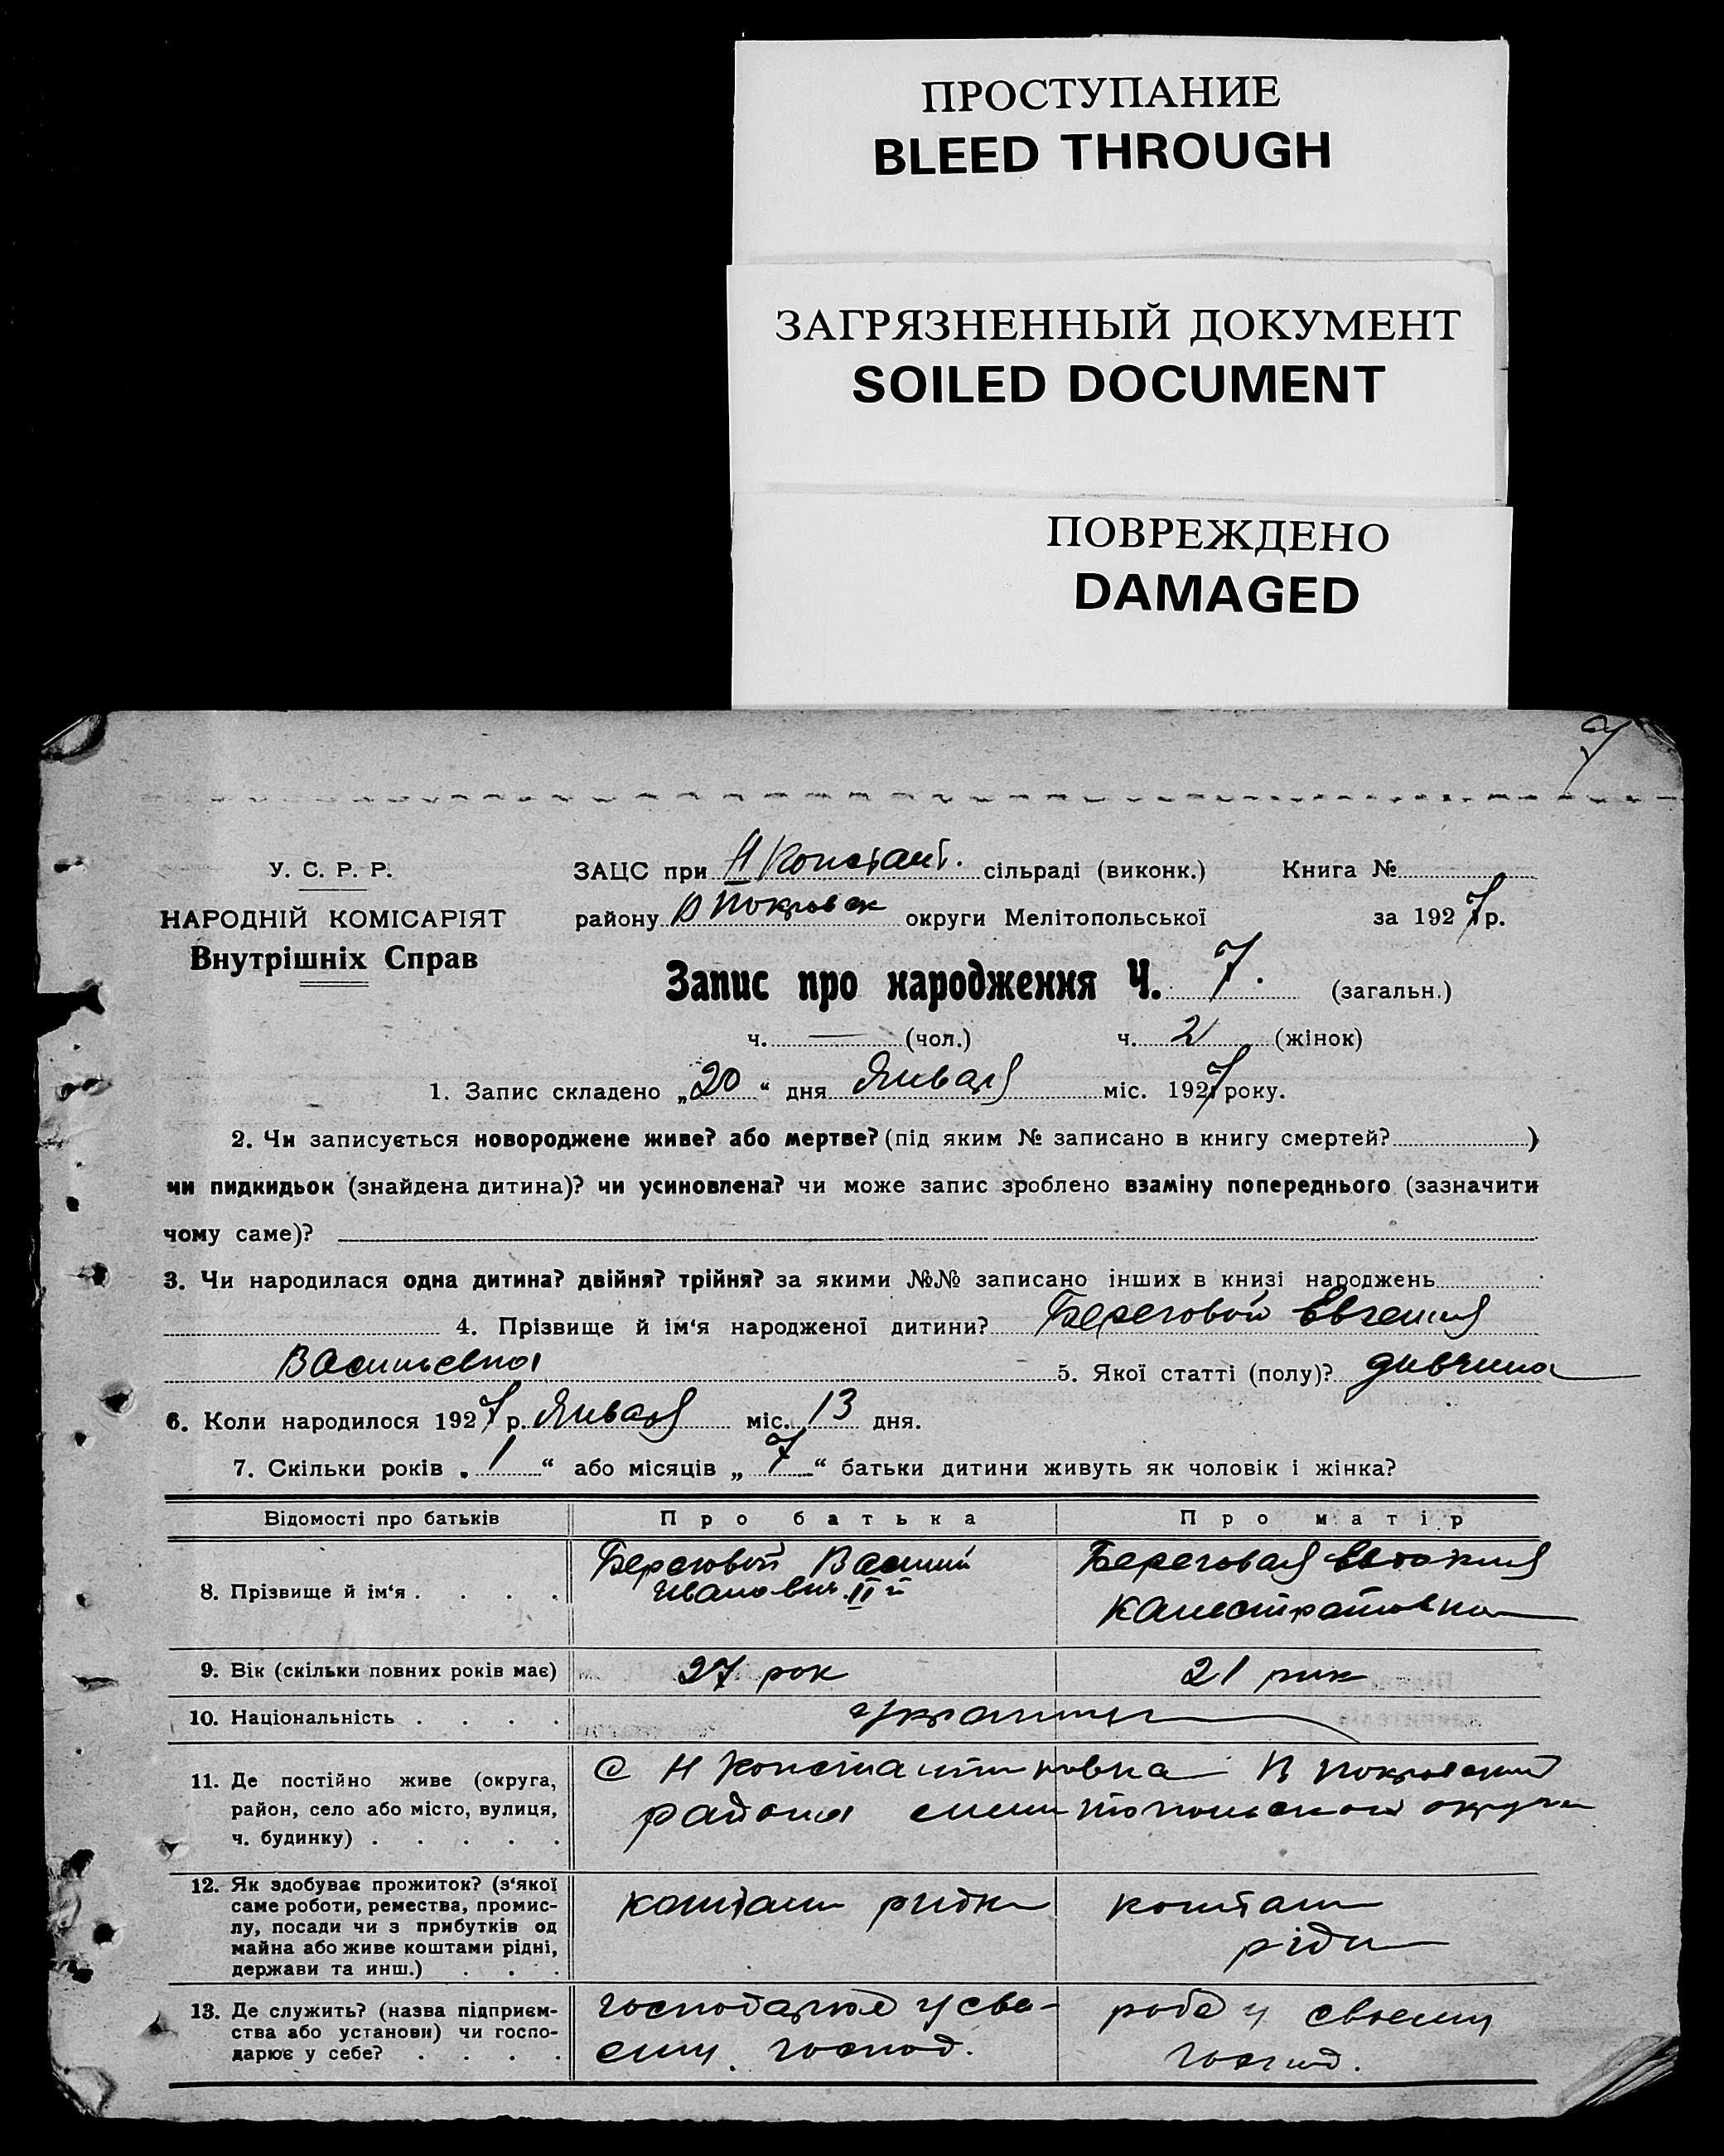 ПРОСТУПАНИЕ
BLEED THROUGH
ЗАГРЯЗНЕННЫЙ ДОКУМЕНТ
SOILED DOCUMENT
ПОВРЕЖДЕНО
DAMAGED
У. С. Р. Р.
НАРОДНІЙ КОМІСАРІЯТ
Внутрішніх Справ
ЗАЦС при Н Констант. сільраді (виконк.) Книга №
району В Покровск округи Мелітопольської за 1927 р.
Запис про народження Ч. 7. (загальн.)
ч. — (чол.) ч. 2 (жінок)
1. Запис складено „20“ дня Января міс. 1927 року.
2. Чи записується новороджене живе? або мертве? (під яким № записано в книгу смертей? )
чи пидкидьок (знайдена дитина)? чи усиновлена? чи може запис зроблено взаміну попереднього (зазначити
чому саме)?
3. Чи народилася одна дитина? двійня? трійня? за якими №№ записано інших в книзі народжень
4. Прізвище й ім‘я народженої дитини? Береговой Евгения
Васильевна 5. Якої статті (полу)? дивчина
6. Коли народилося 1927 р. Января міс. 13 дня.
7. Скільки років „1“ або місяців „7“ батьки дитини живуть як чоловік і жінка?
Відомості про батьків Про батька Про матір
8. Прізвище й ім‘я . . . . Береговой Василий Береговая Евдокия
Иванович IIй Калистратовна
9. Вік (скільки повних років має) 27 рок 21 рик
10. Національність . . . . Украинцы
11. Де постійно живе (округа, С Н Константиновка В Покровский
район, село або місто, вулиця, района мелитопольской округи
ч. будинку) . . . . .
12. Як здобуває прожиток? (з‘якої
саме роботи, ремества, промис- коштами ридни коштами
лу, посади чи з прибутків од
майна або живе коштами рідні, рідн
держави та инш.) . . .
13. Де служить? (назва підприєм- господарюе у сво- робе у своему
ства або установи) чи госпо-
дарює у себе? . . . . ему господ. господ.